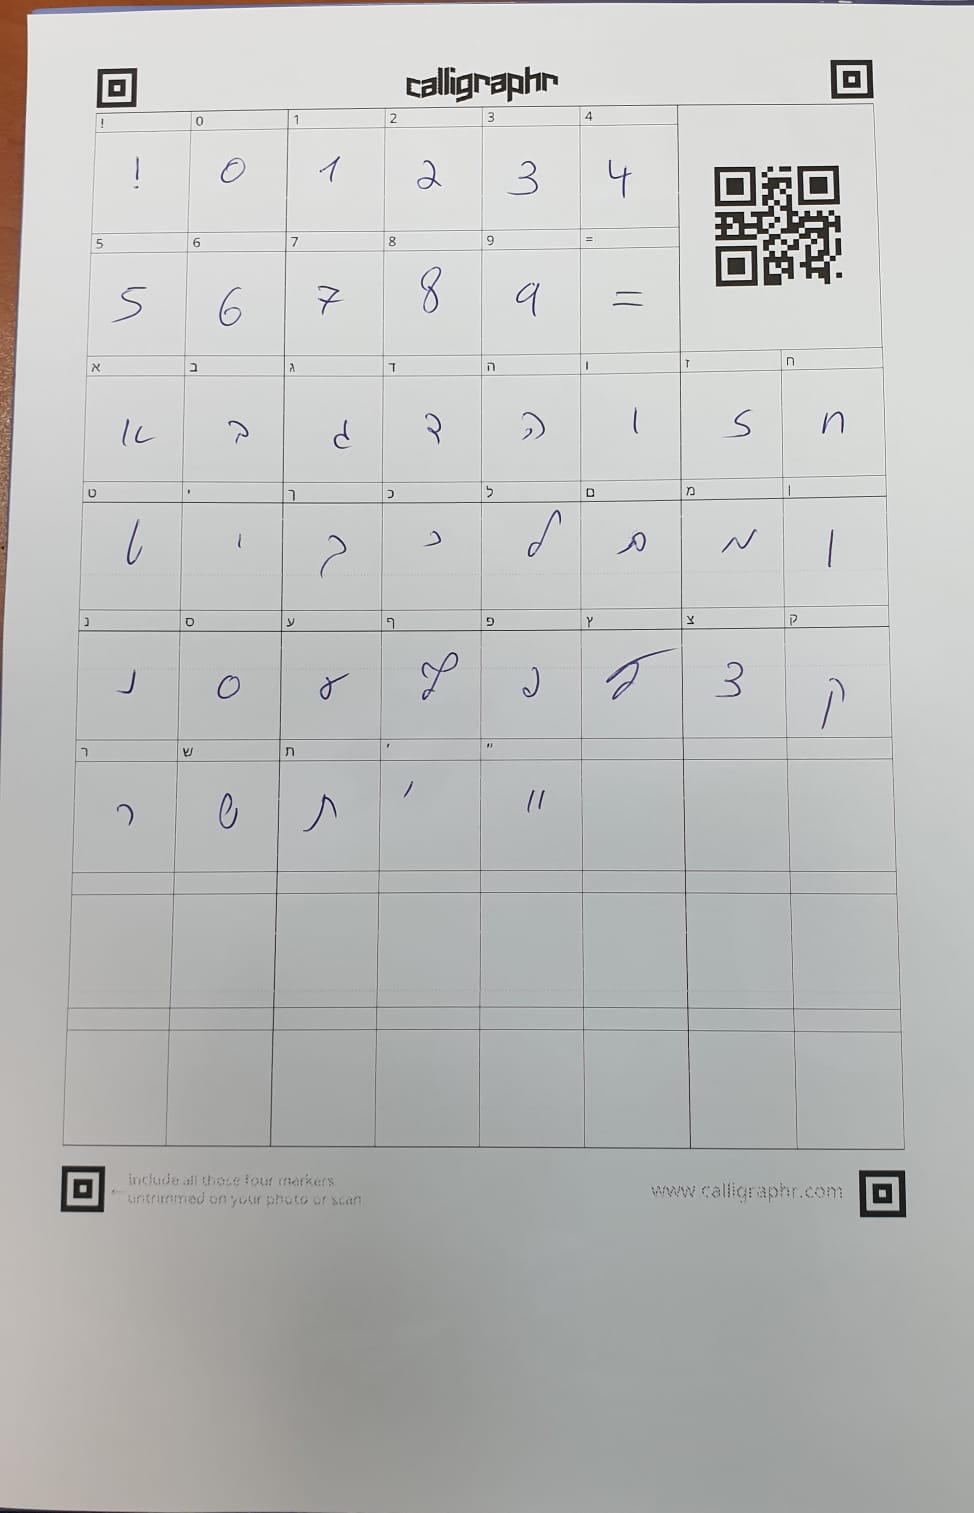 calligraphr
! 0 1 2 3 4
! 0 1 2 3 4
5 6 7 8 9 =
5 6 7 8 9 =
א ב ג ד ה ו ז ח
א ב ג ד ה ו ז ח
ט י ך כ ל ם מ ן
ט י ך כ ל ם מ ן
נ ס ע ף פ ץ צ ק
נ ס ע ף פ ץ צ ק
ר ש ת ׳ ״
ר ש ת ׳ ״
include all those four markers
← untrimmed on your photo or scan
www.calligraphr.com